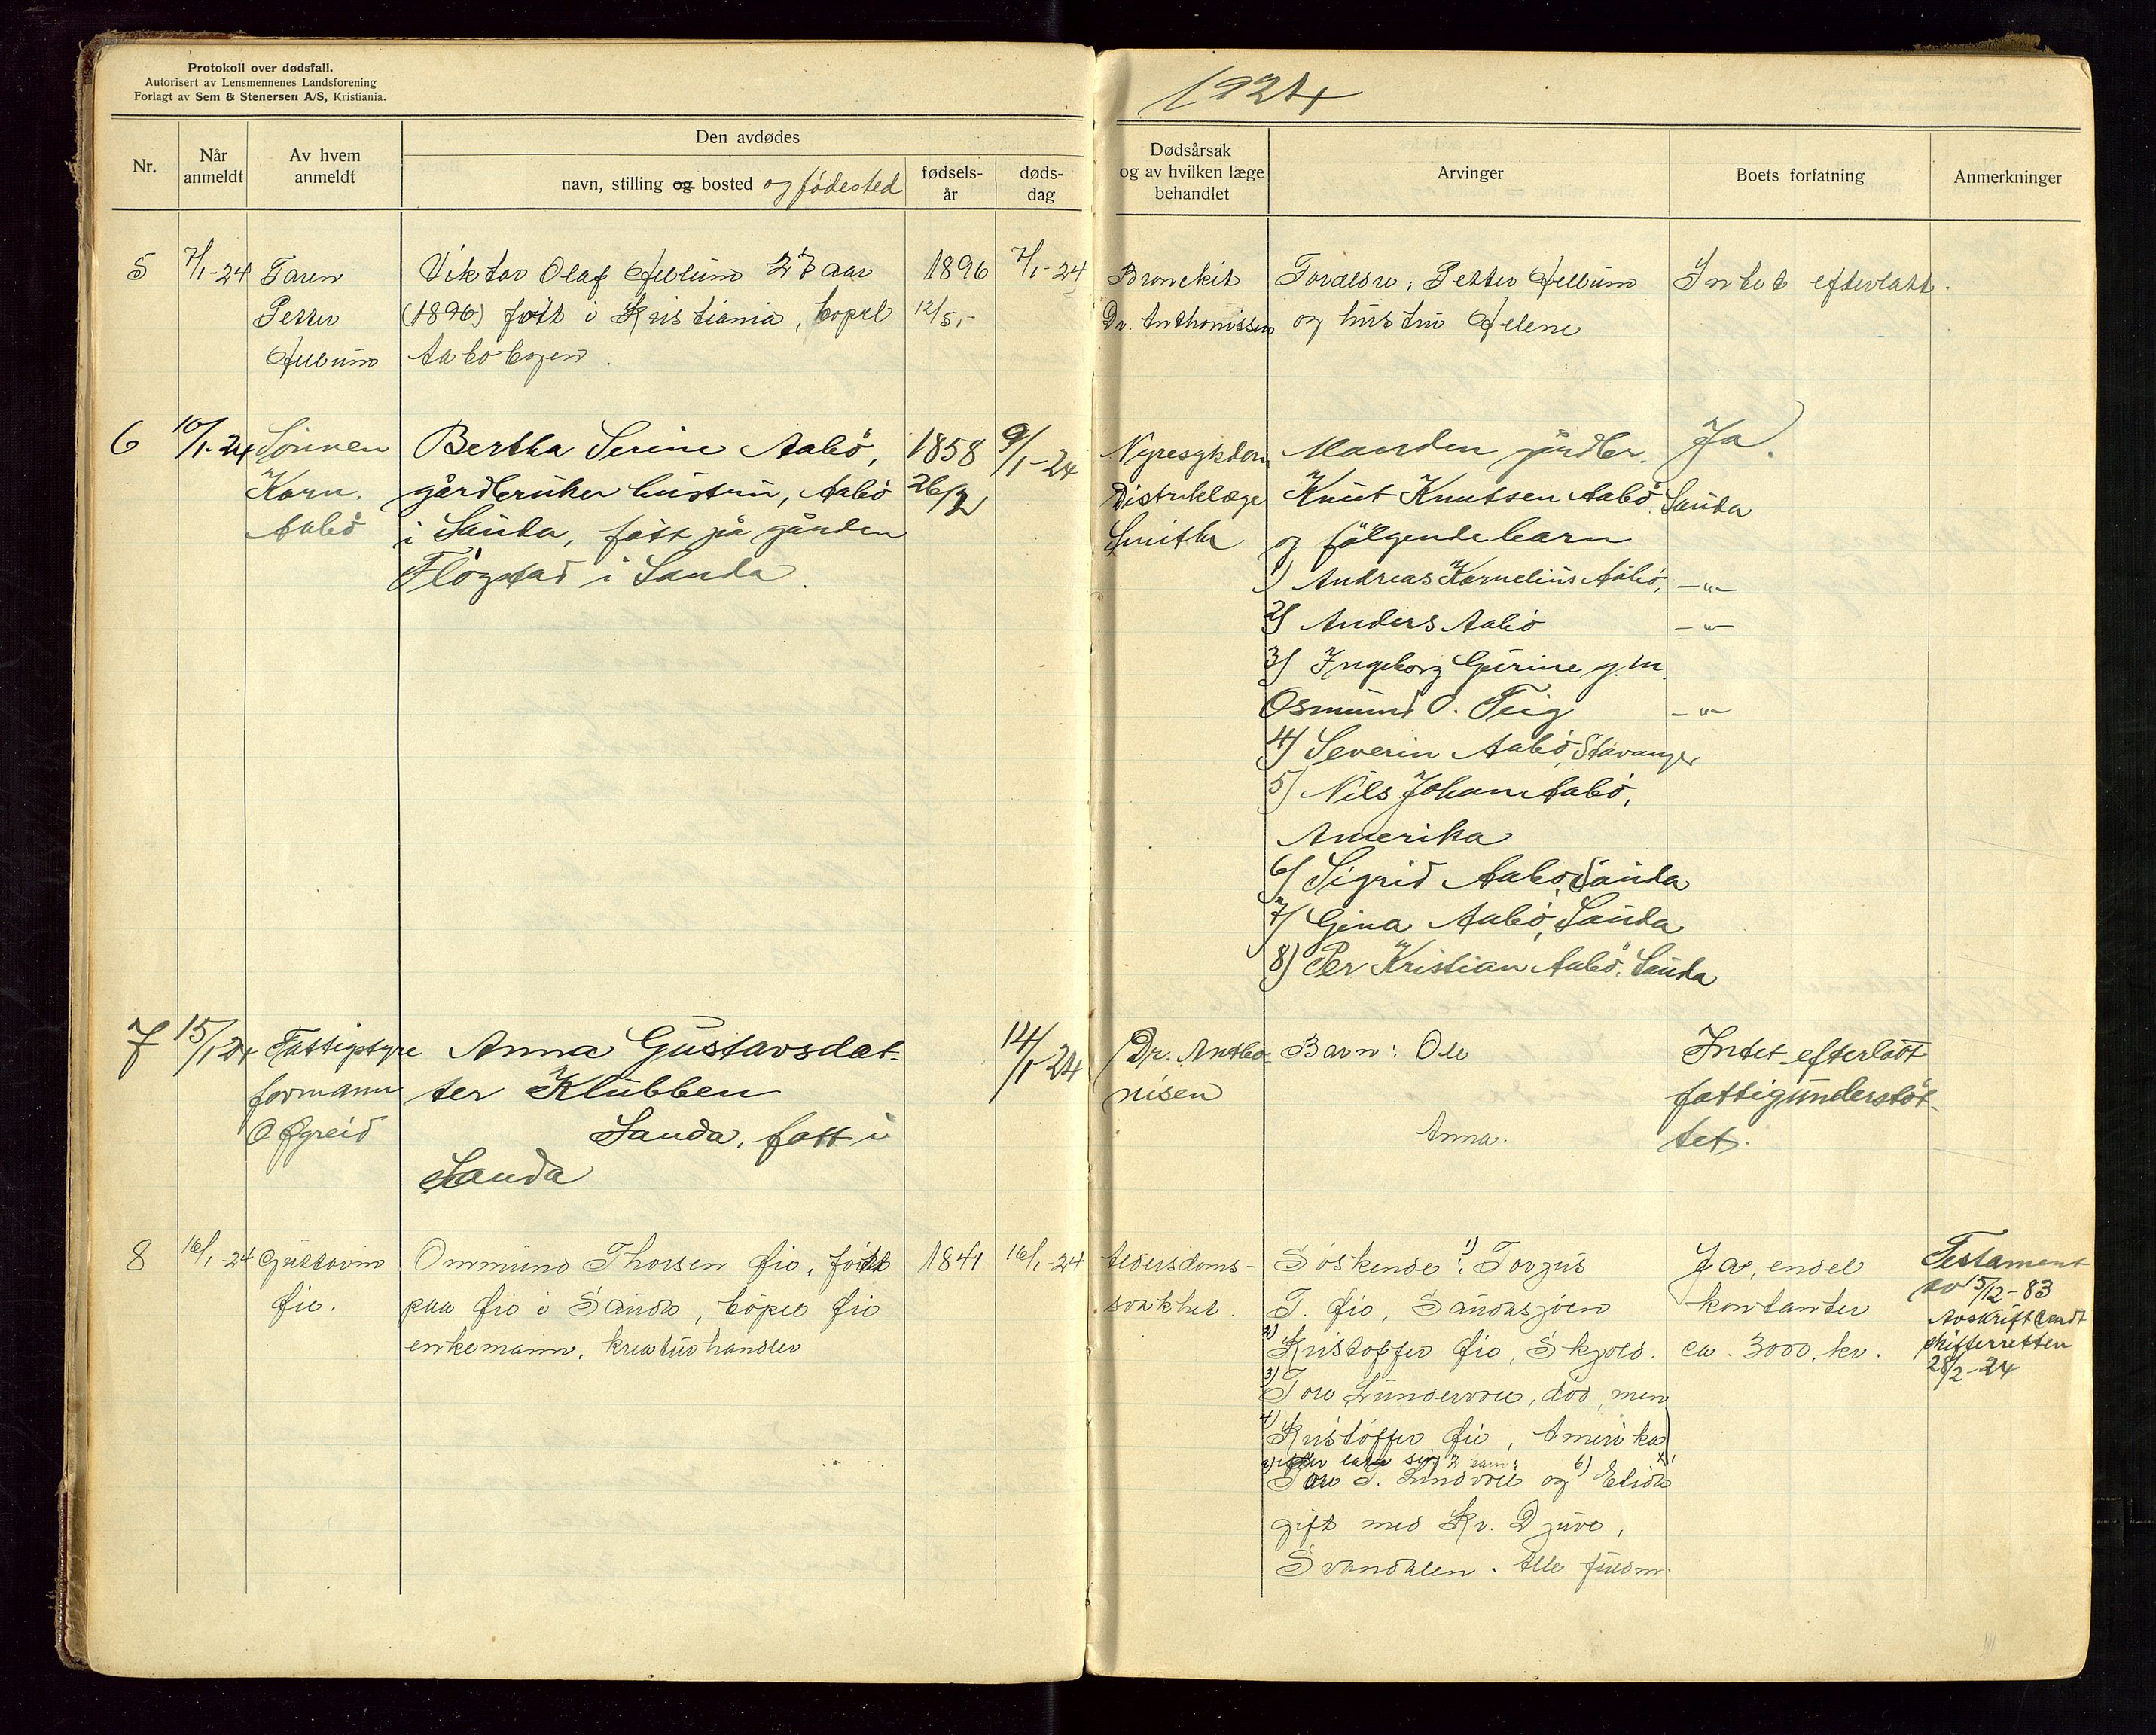 Protokoll over dødsfall.
Autorisert av Lensmennenes Landsforening
Forlagt av Sem & Stenersen A/S, Kristiania.
1924
Nr.
Når anmeldt
Av hvem anmeldt
Den avdødes
navn, stilling og bosted og fødested
fødselsår
dødsdag
Dødsårsak
og av hvilken læge
behandlet
Arvinger
Boets forfatning
Anmerkninger
5
7/1-24
Faren
Petter
Hellum
Viktor Olaf Hellum 27 aar
(1896) født i Kristiania, bopæl
Aabøbyen.
1896
12/5.-
7/1-24
Bronckit
Dr. Anthonissen
Forældre: Petter Hellum
og hustru Helene
Intet efterlatt.
6
10/1-24
Sønnen
Korn.
Aabö
Bertha Serine Aabö,
gårdbruker hustru, Aabö
i Sauda, født på gården
Flögstad i Sauda.
1858
26/2
9/1-24
Nyresykdom
Distriklæge
Smith
Manden gårdbr.
Knut Knutsen Aabö, Sauda
og fölgende barn
1) Andreas Kornelius Aabö, -"-
2) Anders Aabö -"-
3) Ingeborg Gurine g.m.
Osmund O. Teig -"-
4) Severin Aabö, Stavanger
5) Nils Johan Aabö,
Amerika
6) Sigrid Aabö, Sauda
7) Gina Aabö, Sauda
8) Per Kristian Aabö, Sauda
Ja.
7
15/1 24
Fattigstyre
formann
O Øgreid
Anna Gustavsdat-
ter Klubben
Sauda, fött i
Sauda
14/1-24
Dr. Antho-
nisen
Barn: Ole
Anna.
Intet efterlatt
fattigunderstöt-
tet.
8
16/1-24
Gustavus
Øie.
Ommund Thorsen Øie, født
paa Øie i Sauda, bopæl Øie
enkemann, kreaturhandler
1841
16/1-24
Alderdoms-
svakhet.
Søskende: 1) Torjus
T. Øie, Saudasjøen
2) Kristoffer Øie, Skjold.
3) Tore Lundevold, død, men
4) Kristoffer Øie, Amerika
Tore T. Lundvold og 6) Elida
gift med Kr. Djuve,
Svandalen. Alle fuldm.
Ja, endel
kontanter
ca. 3000, kr.
Testament
av 15/12-83
Avskrift sendt
skifteretten
28/2-24